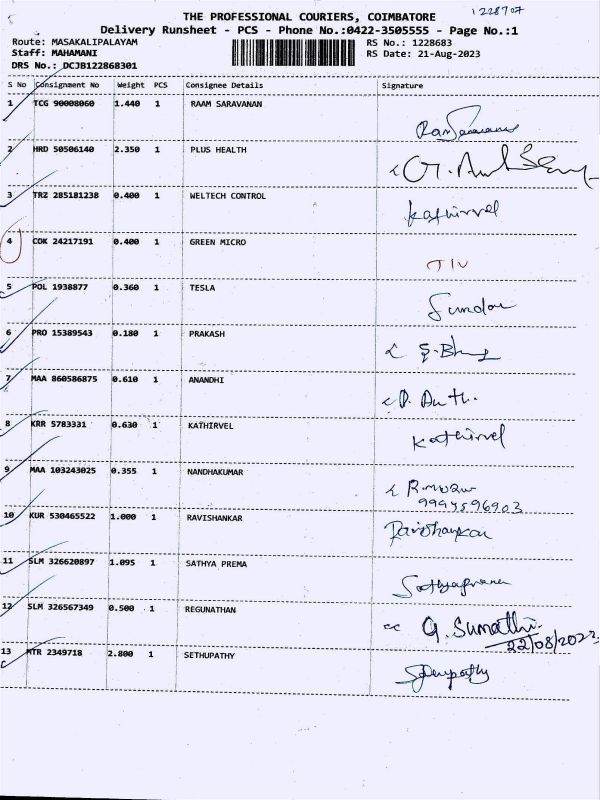 1228707
THE PROFESSIONAL COURIERS, COIMBATORE
Delivery Runsheet - PCS - Phone No.:0422-3505555 - Page No.:1
Route: MASAKALIPALAYAM RS No.: 1228683
Staff: MAHAMANI RS Date: 21-Aug-2023
DRS No.: DCJB122868301
S No Consignment No Weight PCS Consignee Details Signature
1 TCG 90008060 1.440 1 RAAM SARAVANAN
2 HRD 50506140 2.350 1 PLUS HEALTH
3 TRZ 285181238 0.400 1 WELTECH CONTROL
Kathirvel
4 COK 24217191 0.400 1 GREEN MICRO
5 POL 1938877 0.360 1 TESLA
Sundar
6 PRO 15389543 0.180 1 PRAKASH
7 MAA 860586875 0.610 1 ANANDHI
8 KRR 5783331 0.630 1 KATHIRVEL
Kathirvel
9 MAA 103243025 0.355 1 NANDHAKUMAR
9994596903
10 KUR 530465522 1.000 1 RAVISHANKAR
Ravishankar
11 SLM 326620897 1.095 1 SATHYA PREMA
Sathyaprema
12 SLM 326567349 0.500 1 REGUNATHAN
G. Sumathi
22/08/2023
13 MTR 2349718 2.800 1 SETHUPATHY